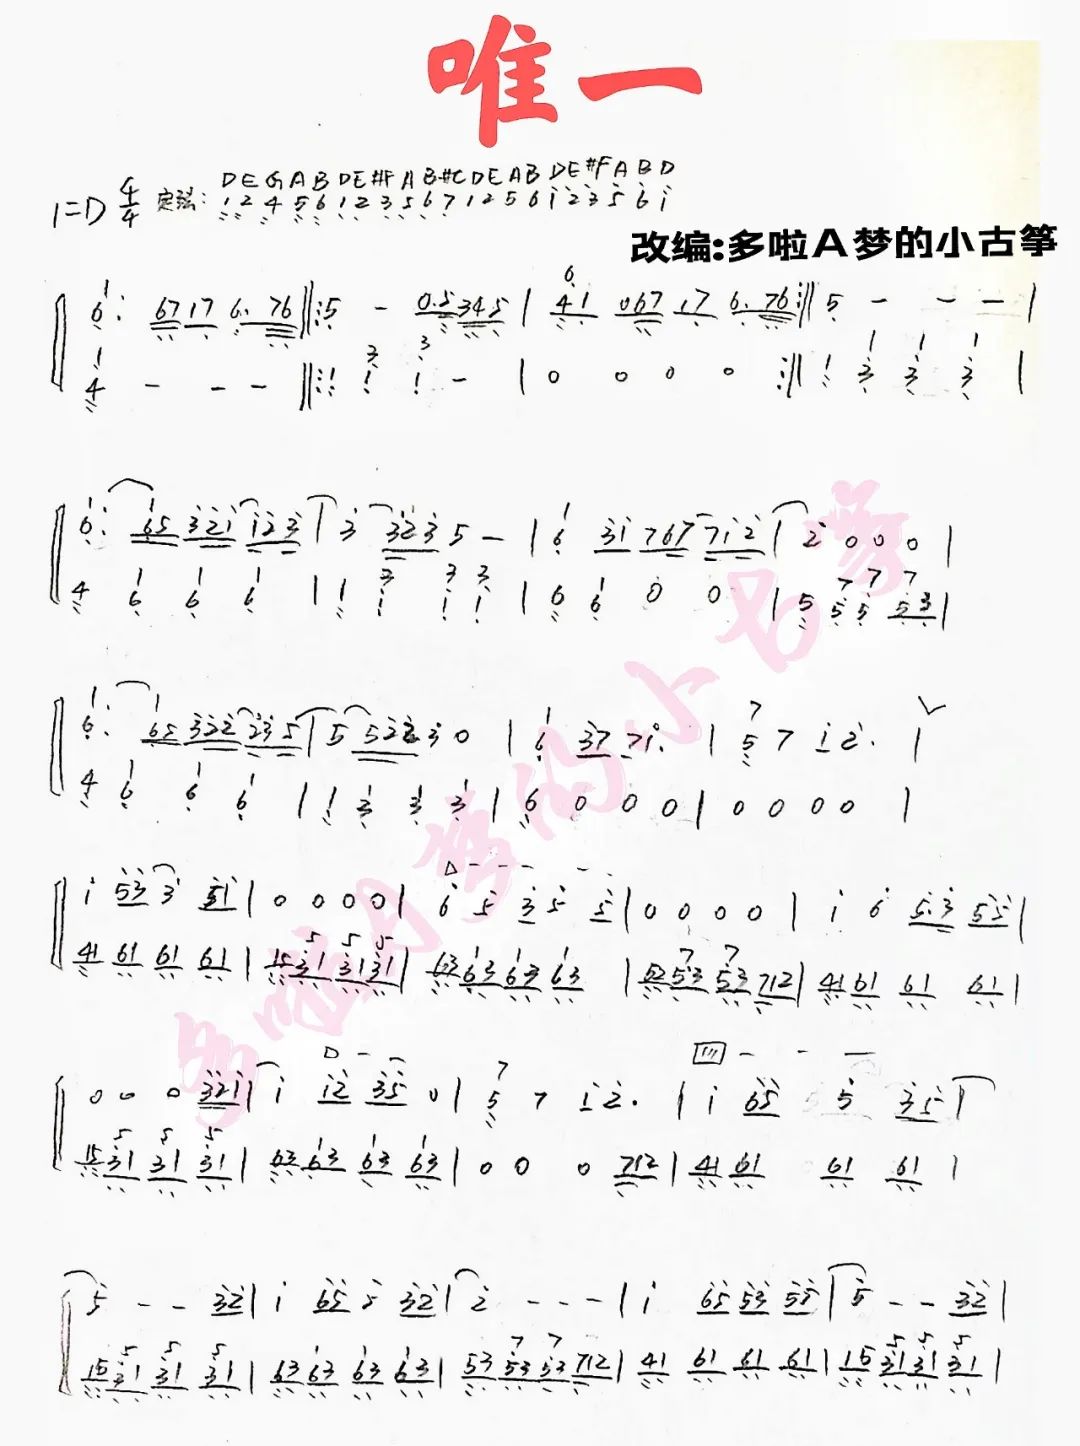 唯一
D E G A B D E #F A B #C D E A B D E #F A B D
1=D 4/4 定弦: 1 2 4 5 6 1 2 3 5 6 7 1 2 5 6 1 2 3 5 6 1
改编:多啦A梦的小古筝
6. 67 17 6. 76 ‖: 5 - 0.5 345 | 41 067 17 6. 76 :‖ 5 - - - |
4 - - - ‖: 1 1 1 - | 0 0 0 0 :‖ 1 3 3 3 |
6. 65 321 123 | 3 323 5 - | 6 31 767 712 | 2 0 0 0 |
4 6 6 6 | 1 1 1 1 | 6 6 0 0 | 5 5 5 53 |
6. 65 322 235 | 5 522 3 0 | 6 37 71. | 5 7 1 2. |
4 6 6 6 | 1 3 3 3 | 6 0 0 0 | 0 0 0 0 |
1 53 3 51 | 0 0 0 0 | 6 5 3 5 5 | 0 0 0 0 | 1 6 5.3 55 |
41 61 61 61 | 15 31 31 31 | 63 63 63 63 | 52 53 53 712 | 41 61 61 61 |
0 0 0 321 | 1 12 35 0 | 5 7 1 2. | 1 65 5 35 |
15 31 31 31 | 63 63 63 63 | 0 0 0 712 | 41 61 61 61 |
5 - - 32 | 1 65 5 32 | 2 - - - | 1 65 53 55 | 5 - - 32 |
15 31 31 31 | 63 63 63 63 | 53 53 53 712 | 41 61 61 61 | 15 31 31 31 |
多啦A梦的小古筝